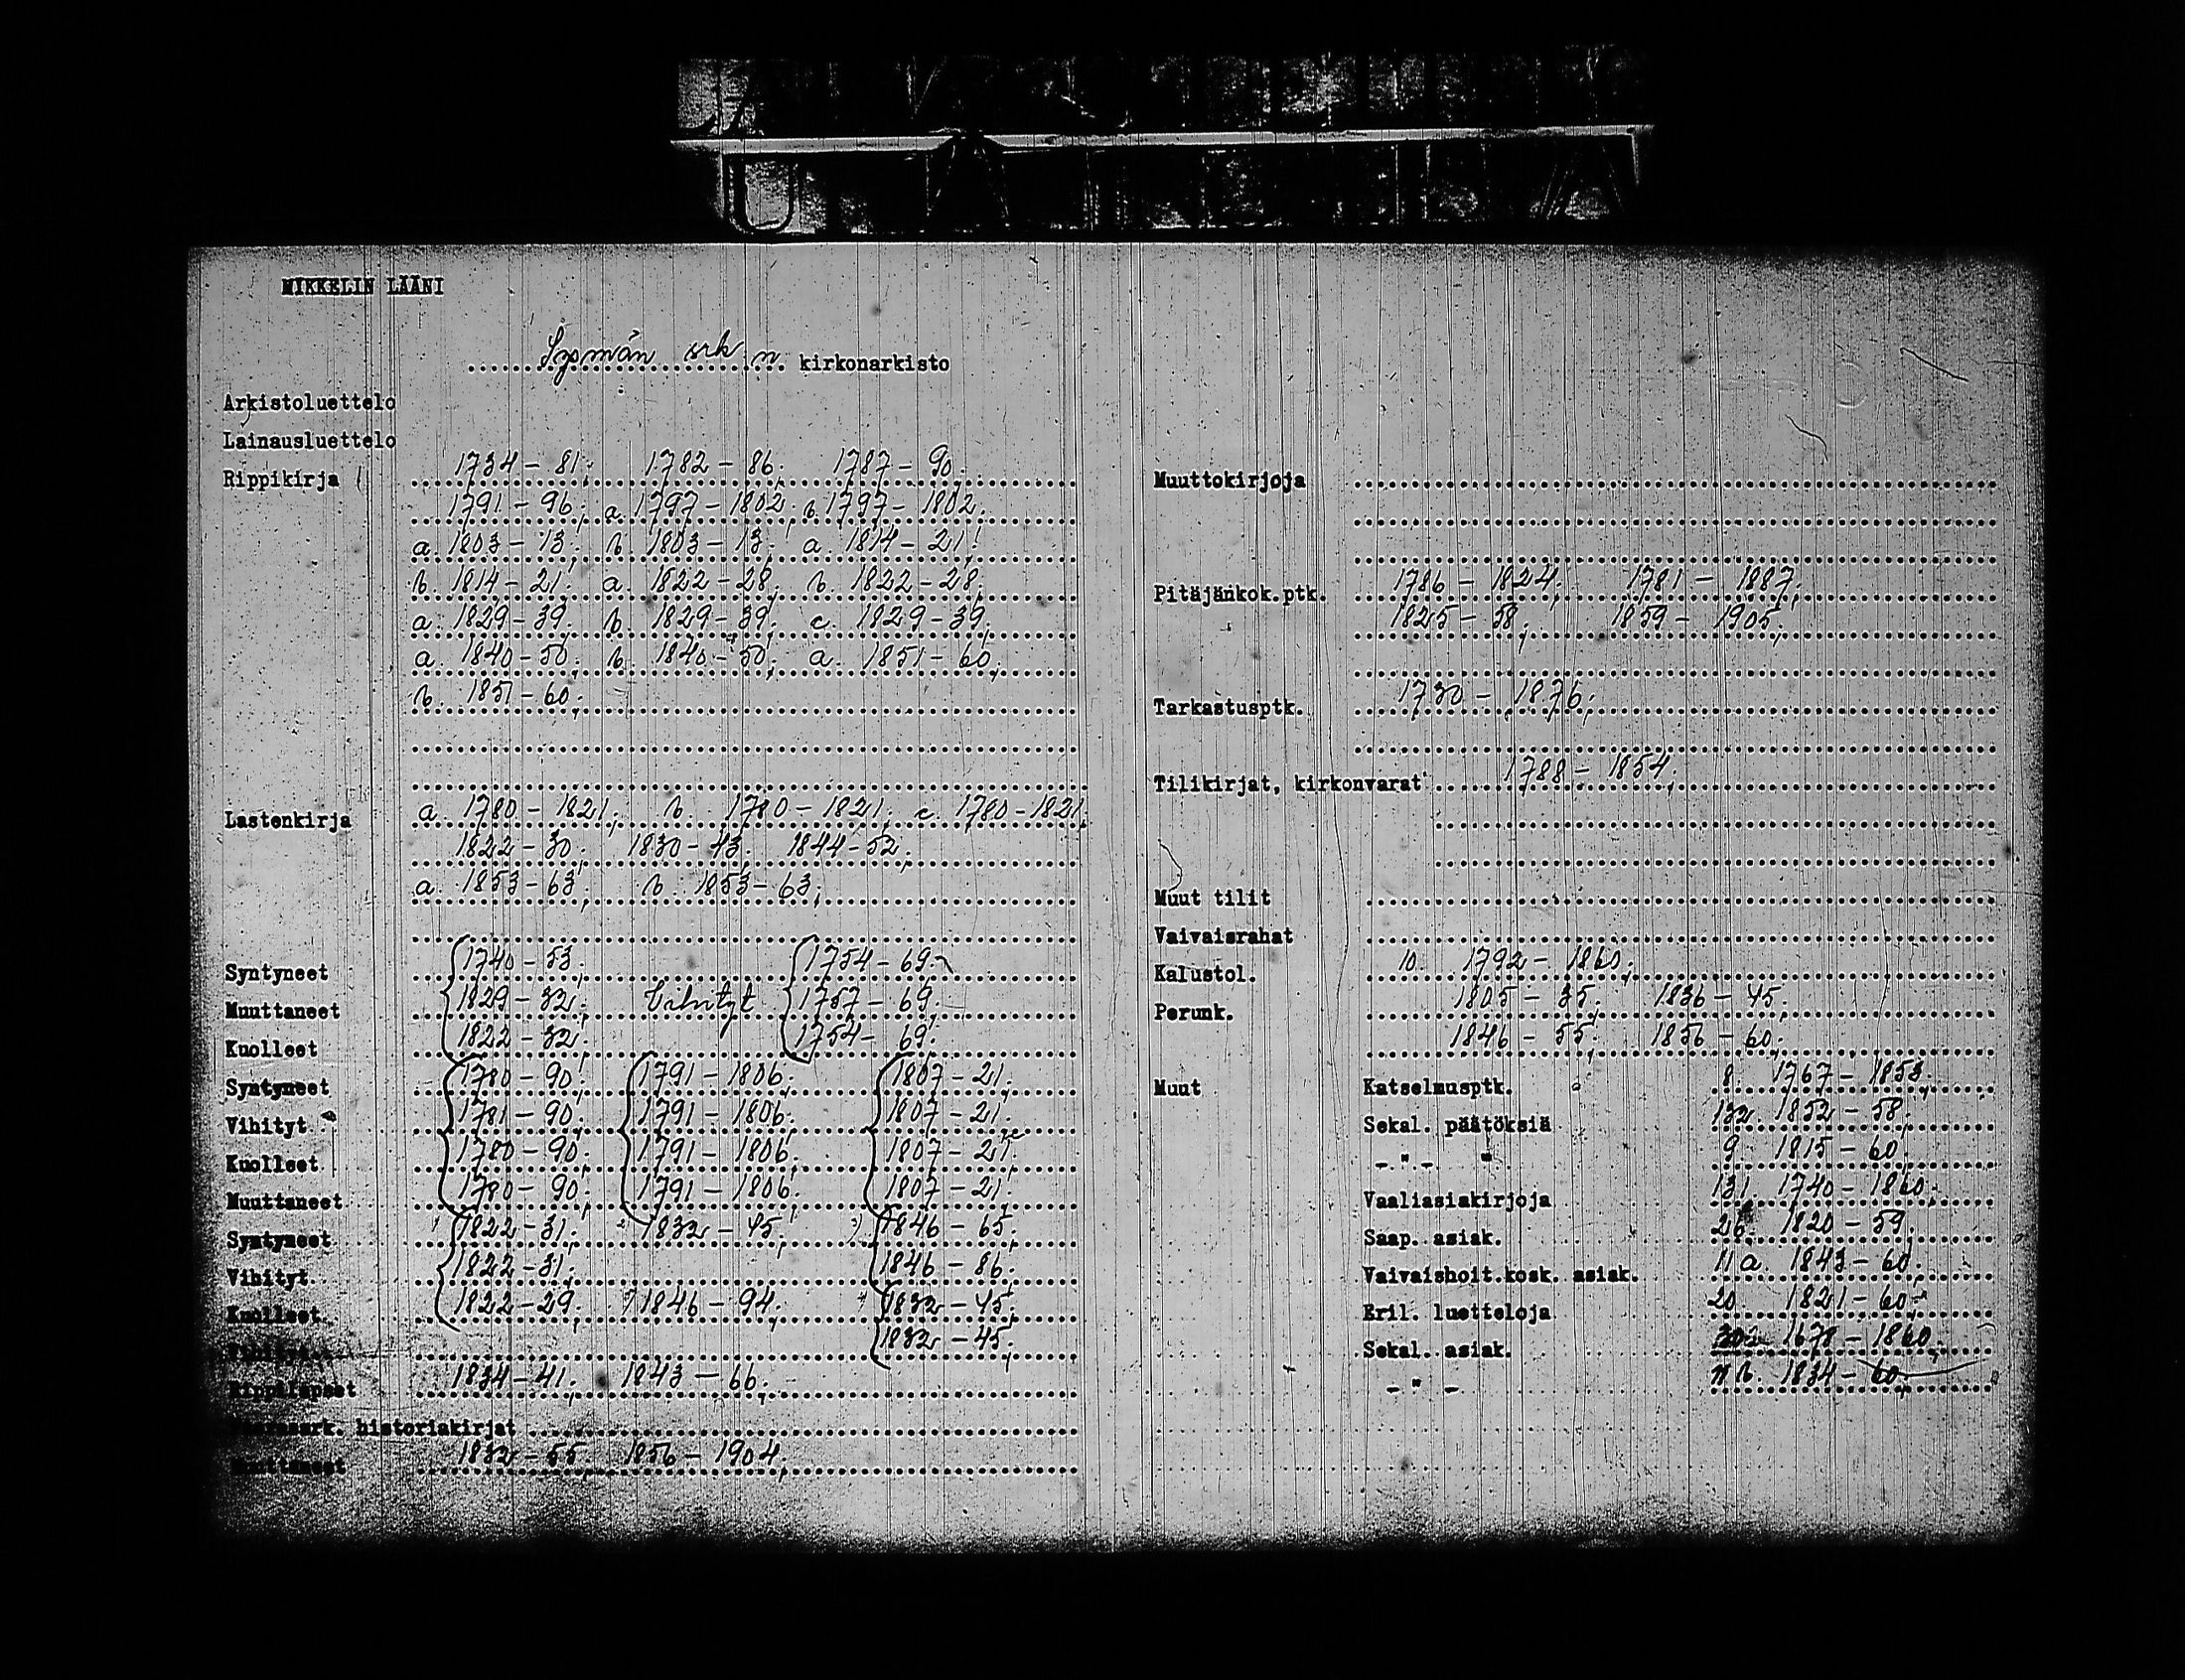 MIKKELIN LÄÄNI
Sysmän srk n. kirkonarkisto
Arkistoluettelo
Lainausluettelo
Rippikirja 1734-81; 1782-86; 1787-90;
1791-96; a. 1797-1802; b. 1797-1802;
a. 1803-13; b. 1803-13; a. 1814-21;
b. 1814-21; a. 1822-28; b. 1822-28;
a. 1829-39; b. 1829-39; c. 1829-39;
a. 1840-50; b. 1840-50; a. 1851-60;
b. 1851-60;
Lastenkirja a. 1780-1821; b. 1780-1821; c. 1780-1821;
1822-30; 1830-43; 1844-52;
a. 1853-63; b. 1853-63;
Syntyneet 1740-53; 1754-69;
Muuttaneet 1829-32; Vihityt 1757-69;
Kuolleet 1822-32; 1754-69;
Syntyneet 1780-90; 1791-1806; 1807-21;
Vihityt 1781-90; 1791-1806; 1807-21;
Kuolleet 1780-90; 1791-1806; 1807-21;
Muuttaneet 1780-90; 1791-1806; 1807-21;
Syntyneet 1822-31; 1832-45; 1846-65;
Vihityt 1822-31; 1846-86;
Kuolleet 1822-29; 1846-94; 1832-45;
Vihityt 1832-45;
Rippilapset 1834-41; 1843-66;
historiakirjat
Muuttaneet 1832-55; 1856-1904;
Muuttokirjoja
Pitäjänkok.ptk. 1786-1824; 1781-1887;
1825-58; 1859-1905;
Tarkastusptk. 1730-1876;
Tilikirjat, kirkonvarat 1788-1854;
Muut tilit
Vaivaisrahat
Kalustol. 10. 1792-1860;
Perunk. 1805-35; 1836-45;
1846-55; 1856-60;
Muut Katselmusptk. 8. 1767-1853;
Sekal. päätöksiä 132 1852-58;
-"- " 9 1815-60;
Vaaliasiakirjoja 131. 1740-1860;
Saap. asiak. 26. 1820-59;
Vaivaishoit.kosk. asiak. 11 a. 1843-60;
Eril. luetteloja 20 1821-60;
Sekal. asiak. 302 1678-1860;
-"- 11 b. 1834-60;